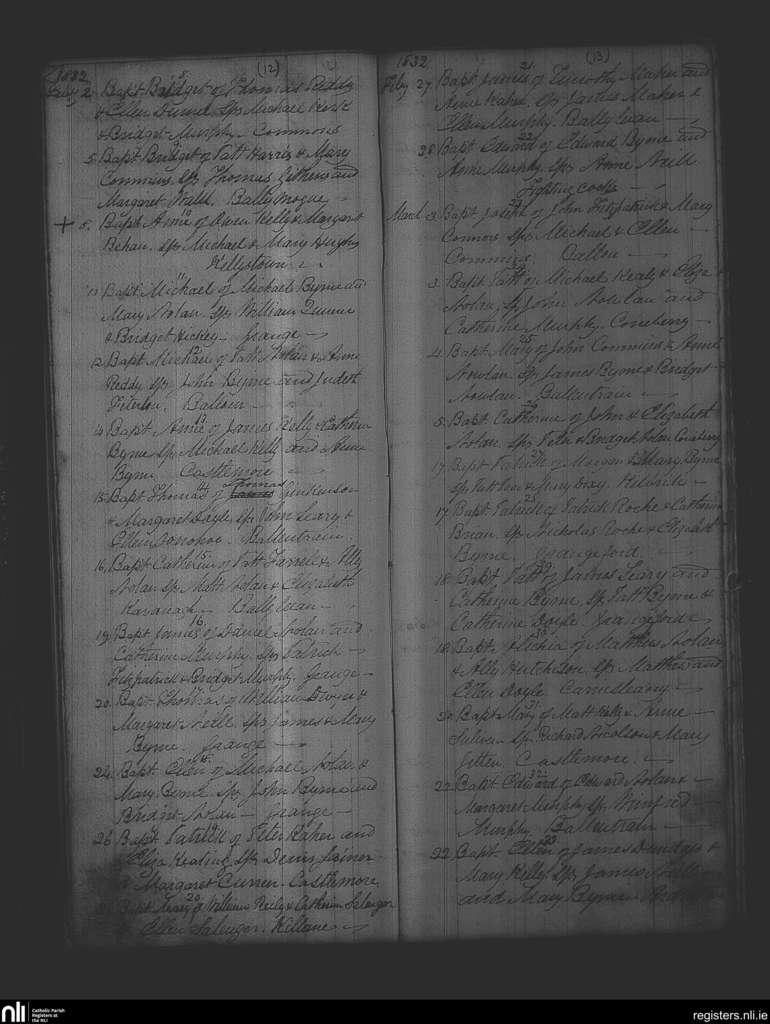 1832 (12)
2 Bapt Bridget of Thomas Reddy
& Ellen Sps Michael
& Bridget Murphy Commons
5 Bapt Bridget of Patt Harris & Mary
Commins Sps Thomas and
Margaret Wall Ballymogue
+ 8 Bapt Anne of Owen Kelly & Margaret
Behan Sps Michael & Mary Hughes
Kellystown
11 Bapt Michael of Michael Byrne and
Mary Nolan Sps William
& Bridget Hickey Grange
12 Bapt Michael of Patt Nolan & Anne
Reddy Sps John Byrne and Judith
Balloon
Bapt Anne of James Kelly & Catherine
Byrne Sps Michael Kelly and Anne
Byrne Castlemore
15 Bapt Thomas of Thomas Jenkenson
& Margaret Doyle Sps John Leary &
Ellen Donohoe Ballintrain
16 Bapt Catherine of Patt Farrell & Elly
Nolan Sps Matt Nolan & Elizabeth
Kavanagh Ballyluan
19 Bapt James of Daniel Nolan and
Catherine Murphy Sps Patrick
Fitzpatrick & Bridget Murphy Grange
20 Bapt Thomas of William Dwyer &
Margaret Neill Sps James & Mary
Byrne Grange
24 Bapt Ellen of Michael Nolan &
Mary Byrne Sps John Byrne and
Bridget Nolan Grange
26 Bapt Patrick of Peter Kaher and
Eliza Keating Sps Denis
Margaret Curren Castlemore
Bapt Mary of William Reily & Catherine Salenger
Ellen Salenger Killane
1832 (13)
Feby 27 Bapt James of Timothy Maher and
Anne Kaher Sps James Maher &
Ellen Murphy Ballyluan
28 Bapt Edward of Edward Byrne and
Anne Murphy Sps Anne Neill
Fighting Cocks
March 3 Bapt Joseph of John Fitzpatrick & Mary
Connors Sps Michael & Ellen
Commins Balloon
3 Bapt Patt of Michael Kealy & Eliza
Nolan Sps John Nowlan and
Catherine Murphy Coneberry
4 Bapt Mary of John Commins & Anne
Nowlan Sps James Byrne & Bridget
Nowlan Ballintrain
5 Bapt Catherine of John & Elizabeth
Nolan Sps Peter & Bridget Nolan
17 Bapt Patrick of Morgan & Mary Byrne
Sps Kilbride
17 Bapt Patrick of Patrick Roche & Catherine
Brian Sps Nicholas Roche & Elizabeth
Byrne Grangeford
18 Bapt Patt of James Leary and
Catherine Byrne Sps Patt Byrne &
Catherine Doyle Grangeford
18 Bapt of Matthew Nolan
& Ally Hutchison Sps Matthew and
Ellen Doyle
20 Bapt Mary of Matt Kelly & Anne
Sps Richard Nicolson & Mary
Castlemore
22 Bapt Edward of Edward Nolan &
Margaret Murphy Sps Winifred
Murphy Ballintrain
22 Bapt Ellen of James Dundass &
Mary Kelly Sps James Neill
and Mary Byrne
nli
Catholic Parish
Registers at
the NLI
registers.nli.ie